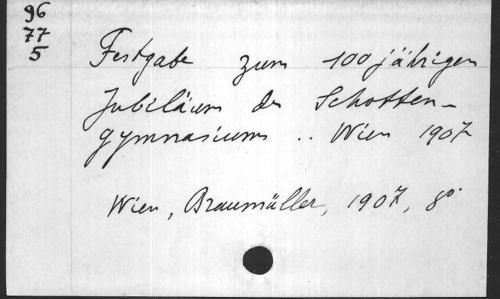 96
77
5
Festgabe zum 100jährigen
Jubiläum des Schotten-
gymnasiums .. Wien 1907
Wien, Braumüller, 1907, 8º.